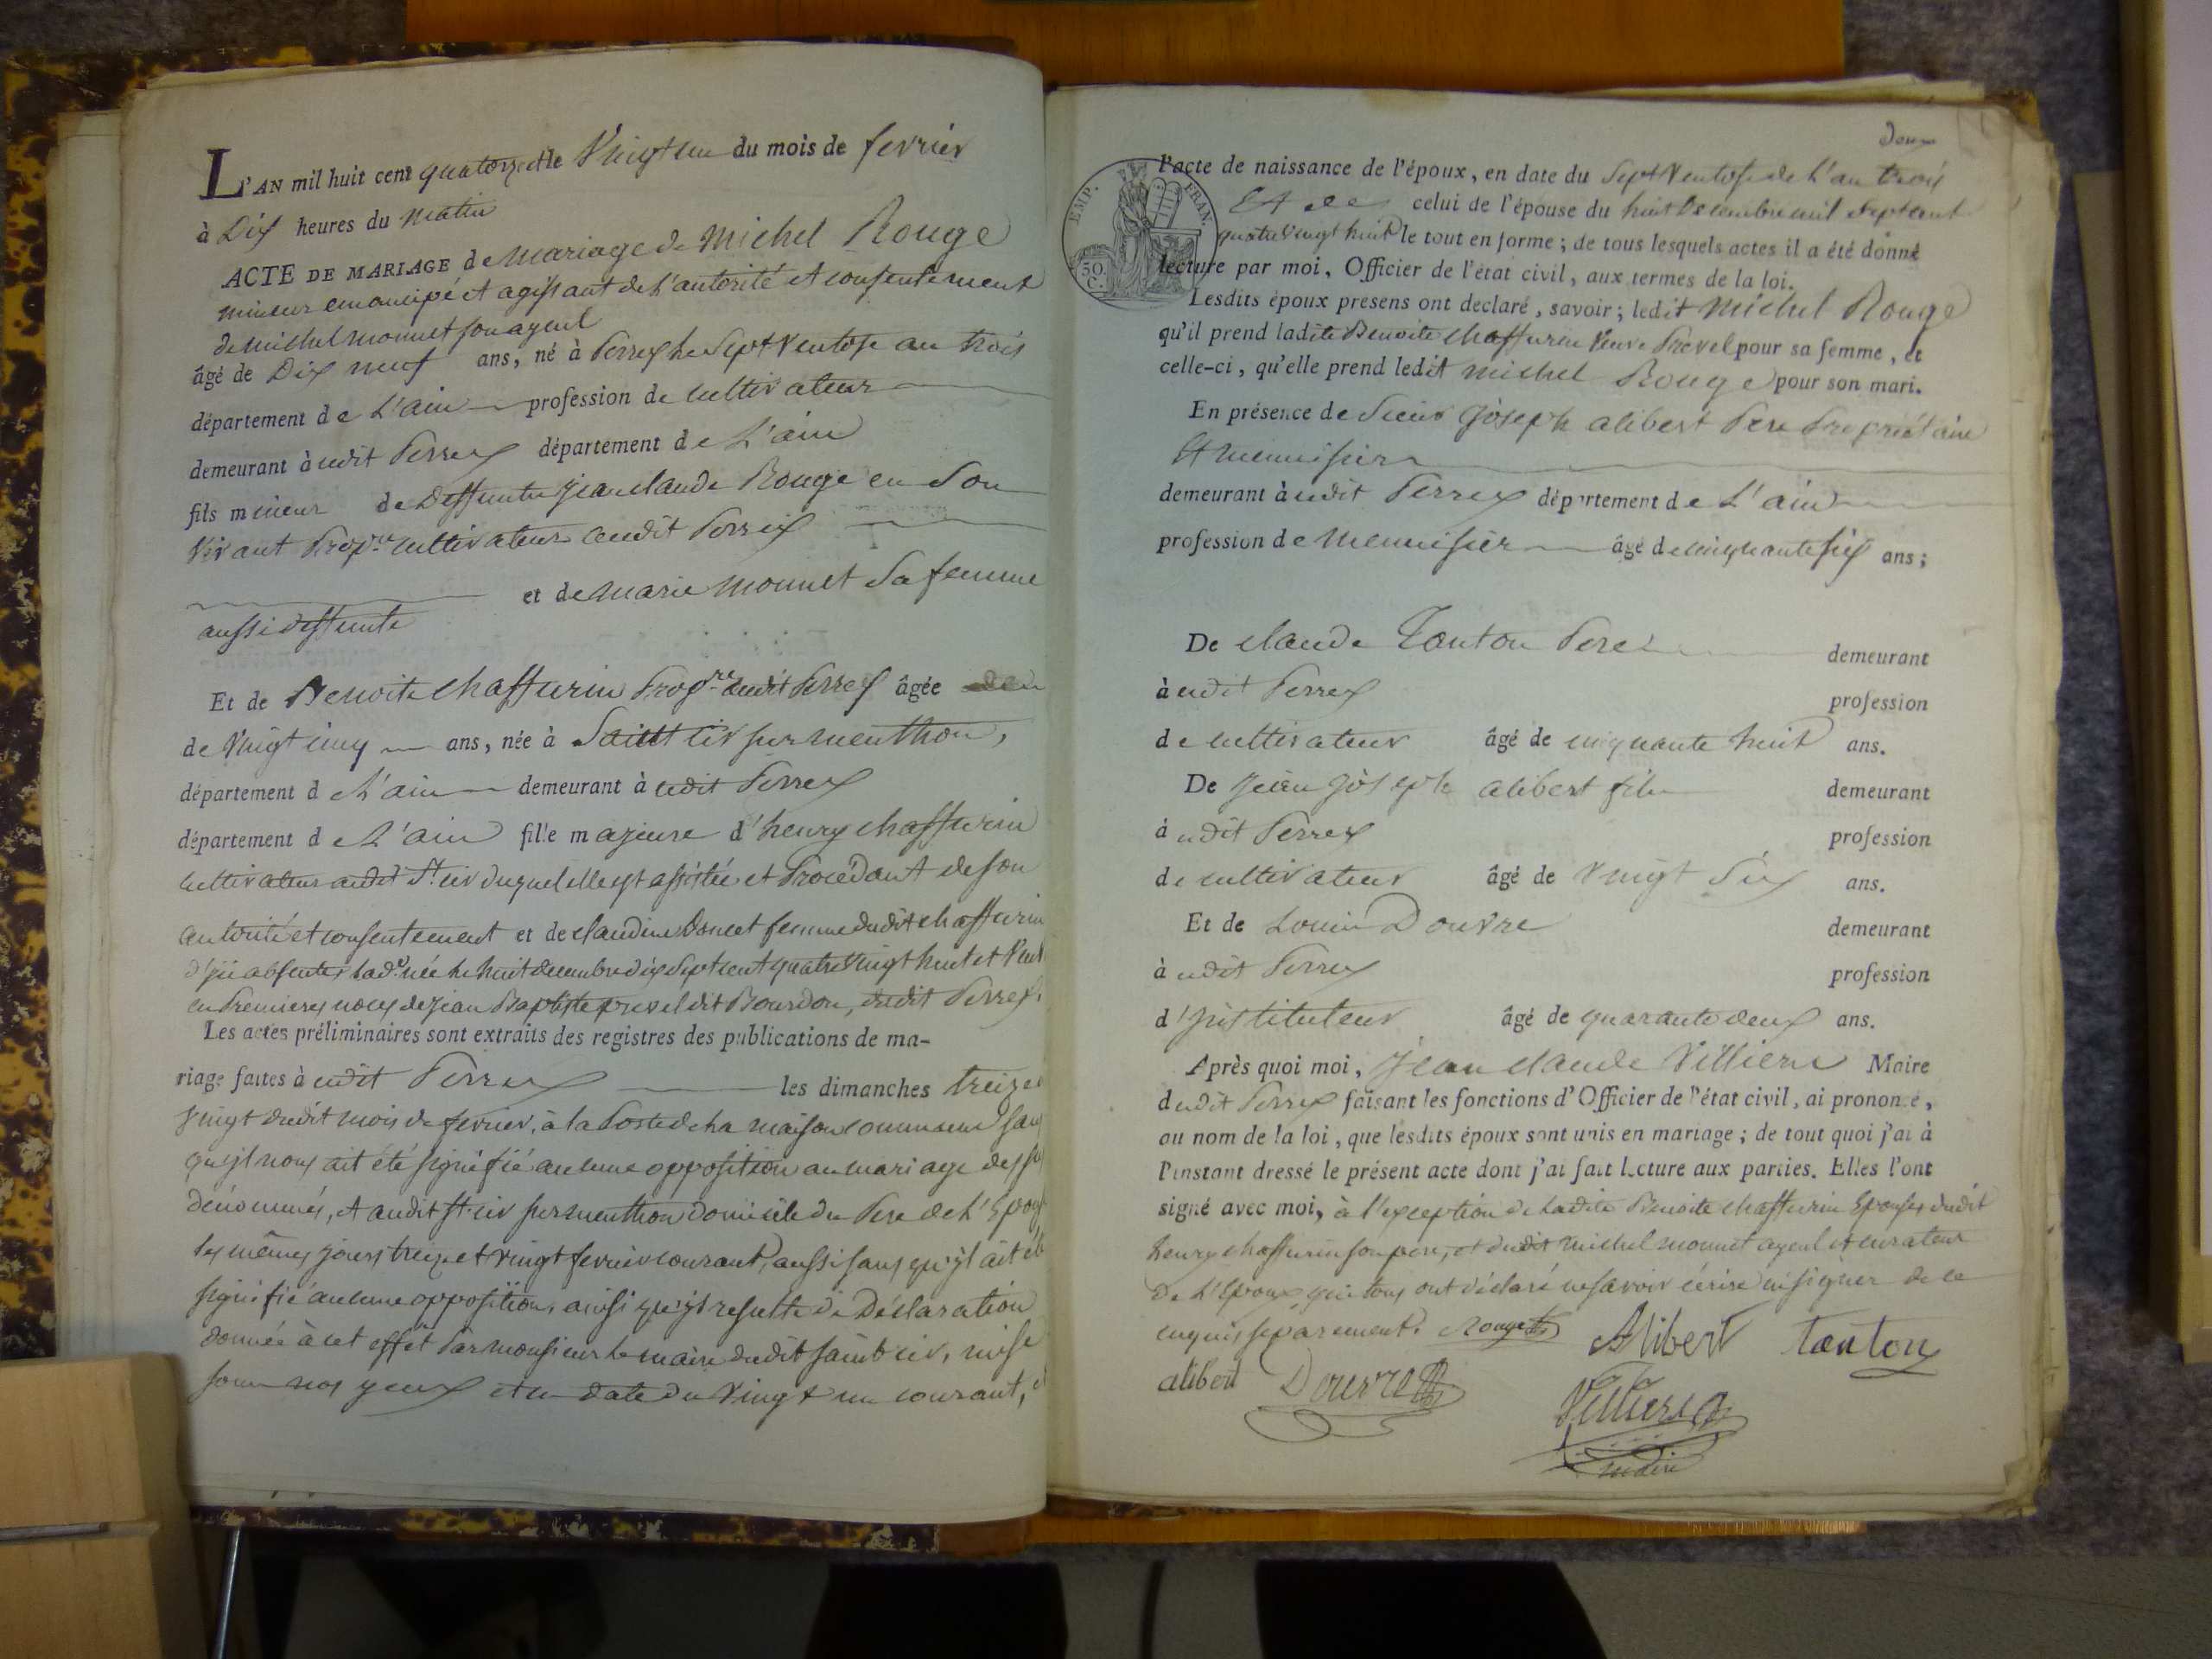 L'AN mil huit cent quatorze et le Vingt un du mois de fevrier
à Dix heures du matin
ACTE DE MARIAGE de mariage de Michel Rouge
mineur emancipé et agissant de l'autorité et consentement
de michel monnet son ayeul
âgé de Dix neuf ans, né à Perrex le Sept Ventose an trois
département de L'ain profession de cultivateur
demeurant à udit Perrex département de L'ain
fils mineur de Deffuntu Jean claude Rouge en Son
Vivant Propre cultivateur audit Perrex
et de marie monnet Sa femme
aussi deffunte
Et de Benoite chaffurin Propre audit Perrex âgée
de Vingt cinq ans, née à Saint cir sur menthon,
département de L'ain demeurant à udit Perrex
département de L'ain fille majeure d'henry chaffurin
cultivateur audit St. cir duquel elle est assistée et Procédant de son
autorité et consentement et de claudine Doncet femme dudit chaffurin
d'ici absente, lad.e née le huit decembre dix Sept cent quatre Vingt huit et Veuve
en Premieres noces de Jean Baptiste prevel dit Bourdon, dudit Perrex.
Les actes préliminaires sont extraits des registres des publications de ma-
riage faites à udit Perrex les dimanches treize
Vingt dudit mois de fevrier, à la Porte de la maison commune sans
qu'il nous ait été signifié aucune opposition au mariage des sus
dénommés, et audit St. cir sur menthon domicile du Pere de l'Epouse
les mêmes jours treize et vingt fevrier courant, aussi sans qu'il ait été
signifié aucune opposition, ainsi qu'il resulte de Déclaration
donnée à cet effet Par monsieur le maire dudit saint cir, mise
sous nos yeux et en date du Vingt un courant,
deux
EMP. FRAN.
50 C.
l'acte de naissance de l'époux, en date du Sept Ventose de l'an trois
Et de celui de l'épouse du huit decembre mil Sept cent
quatre Vingt huit le tout en forme; de tous lesquels actes il a été donné
lecture par moi, Officier de l'état civil, aux termes de la loi.
Lesdits époux presens ont declaré, savoir; ledit Michel Rouge
qu'il prend ladite Benoite chaffurin Veuve Prevel pour sa femme, et
celle-ci, qu'elle prend ledit michel Rouge pour son mari.
En présence de Sieur Joseph alibert Pere Propriétaire
Et menuisier
demeurant à udit Perrex département de L'ain
profession de Menuisier âgé de cinquante six ans;
De claude Tanton Pere demeurant
à udit Perrex profession
de cultivateur âgé de cinquante huit ans.
De Jean Joseph alibert fils demeurant
à udit Perrex profession
de cultivateur âgé de Vingt Six ans.
Et de Louis Douvre demeurant
à udit Perrex profession
d'Instituteur âgé de quarante deux ans.
Après quoi moi, Jean claude Villiers Maire
dudit Perrex faisant les fonctions d'Officier de l'état civil, ai prononcé,
au nom de la loi, que lesdits époux sont unis en mariage; de tout quoi j'ai à
l'instant dressé le présent acte dont j'ai fait lecture aux parties. Elles l'ont
signé avec moi, à l'exception de Ladite Benoite chaffurin Epouse, dudit
henry chaffurin son pere, et dudit michel monnet ayeul et curateur
de L'Epoux, qui tous ont déclaré ne savoir écrire ni signer de ce
enquis separement. Rouge Alibert tanton
alibert Douvre Villiers
maire